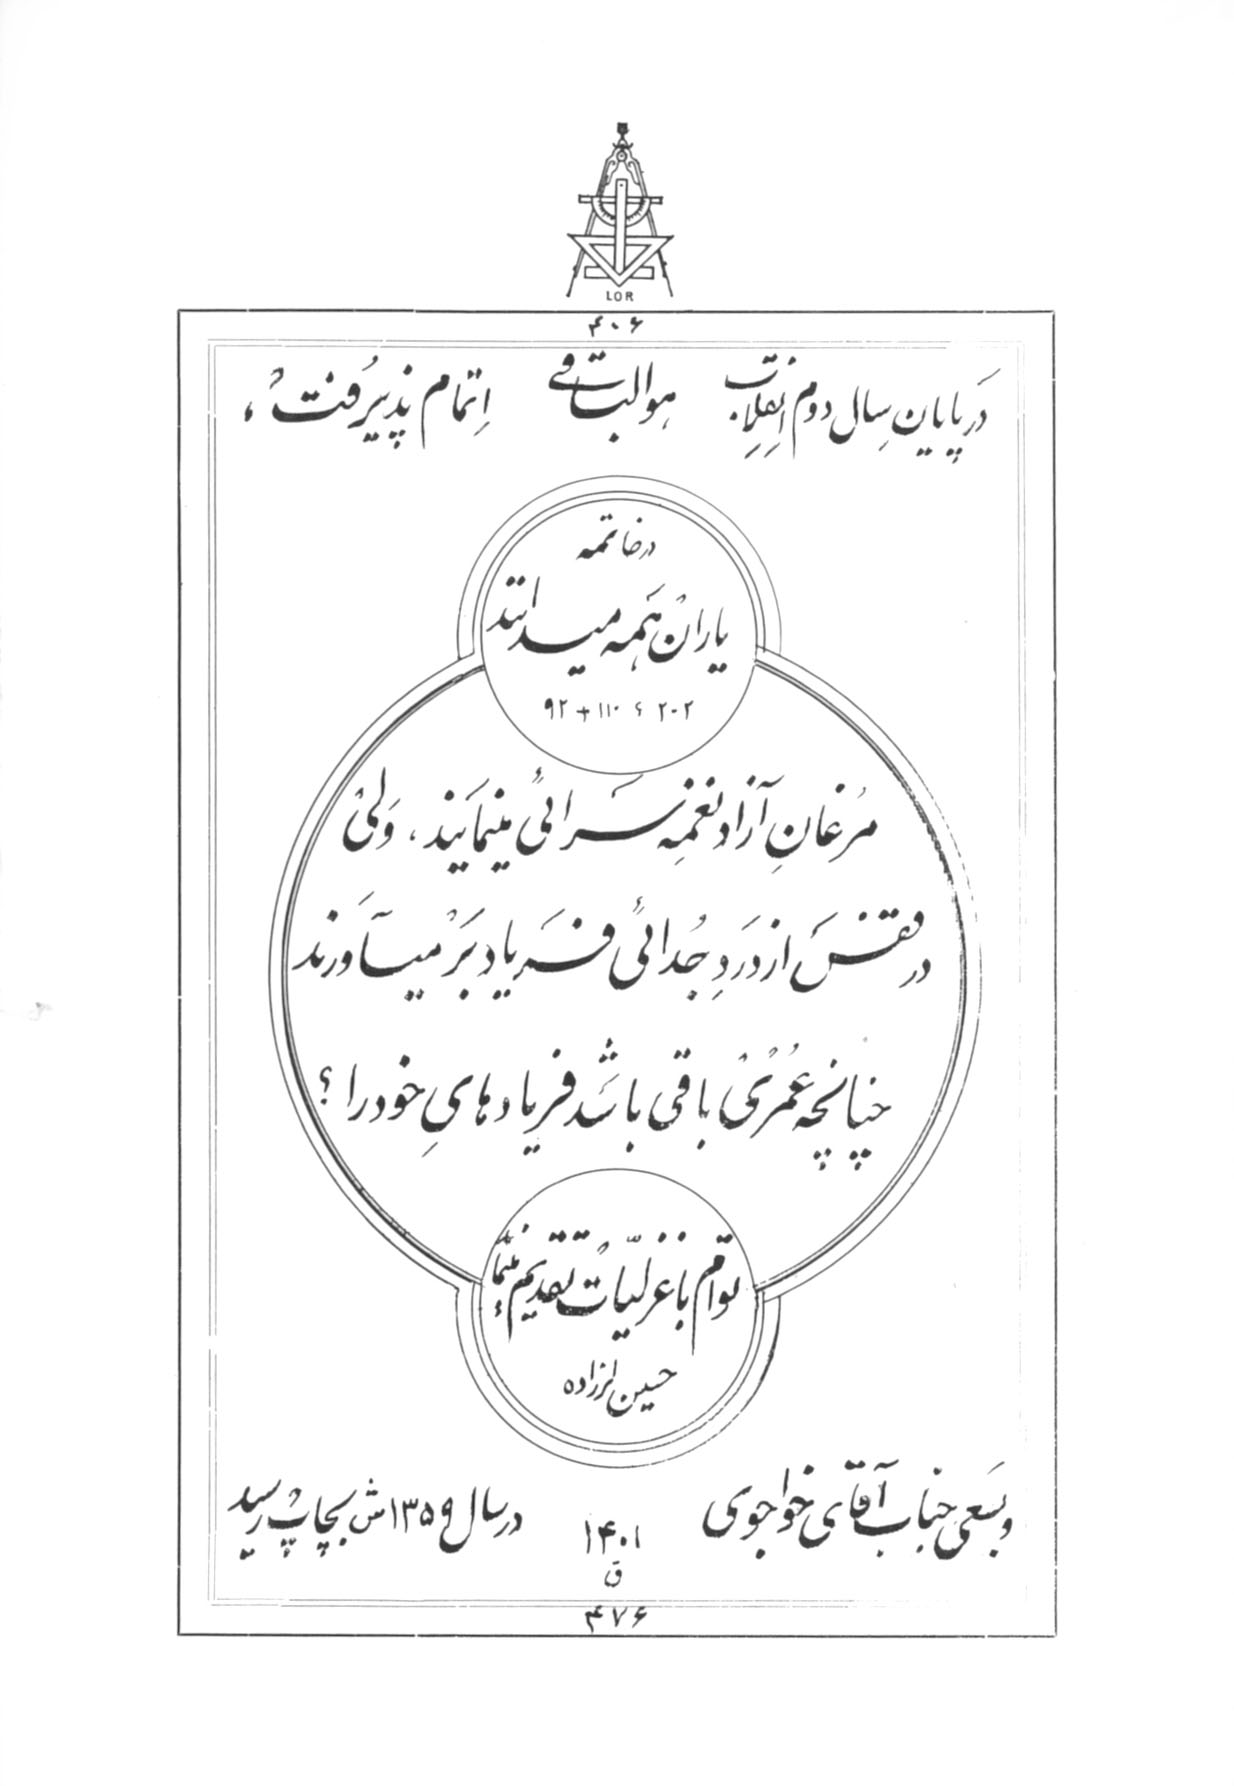 LOR
۴۰۶
در پایان سال دوم انقلاب هوالباقی اتمام پذیرفت،
در خاتمه
یاران همه میدانند
۲۰۲ ۶ ۱۱۰ + ۹۲
مرغانِ آزاد نغمه سرائی مینمایند، ولی
در قفس از دردِ جدائی فریاد بر میآورند
چنانچه عمری باقی باشد فریادهایِ خود را ؟
توأم با غزلیّات تقدیم مینما
حسین لرزاده
وبسعی جناب آقای خواجوی ۱۴۰۱ در سال ۱۳۵۹ ش بچاپ رسید
ق
۴۷۶